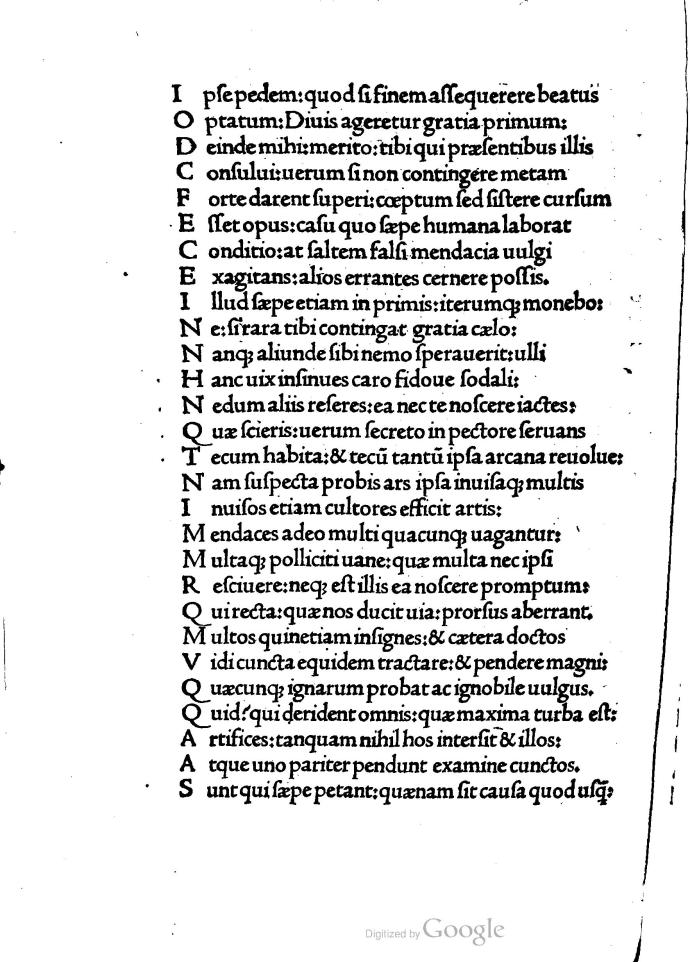 I pſe pedem:quod ſi finem aſſequerere beatus
O ptatum:Diuis ageretur gratia primum:
D einde mihi:merito:tibi qui præſentibus illis
C onſului:uerum ſi non contingere metam
F orte darent ſuperi:cœptum ſed ſiſtere curſum
E ſſet opus:caſu quo ſæpe humana laborat
C onditio:at ſaltem falſi mendacia uulgi
E xagitans:alios errantes cernere poſſis.
I llud ſæpe etiam in primis:iterumq; monebo:
N e:ſi rara tibi contingat gratia cælo:
N anq; aliunde ſibi nemo ſperauerit:ulli
H anc uix inſinues caro fidoue ſodali:
N edum aliis referes:ea nec te noſcere iactes:
Q uæ ſcieris:uerum ſecreto in pectore ſeruans
T ecum habita:& tecū tantū ipſa arcana reuolue:
N am ſuſpecta probis ars ipſa inuiſaq; multis
I nuiſos etiam cultores efficit artis:
M endaces adeo multi quacunq; uagantur:
M ultaq; polliciti uane:quæ multa nec ipſi
R eſciuere:neq; eſt illis ea noſcere promptum:
Q ui recta:quæ nos ducit uia:prorſus aberrant.
M ultos quinetiam inſignes:& cætera doctos
V idi cuncta equidem tractare:& pendere magni:
Q uæcunq; ignarum probat ac ignobile uulgus.
Q uid?qui derident omnis:quæ maxima turba eſt:
A rtifices:tanquam nihil hos interſit & illos:
A tque uno pariter pendunt examine cunctos.
S unt qui ſæpe petant:quænam ſit cauſa quod uſq̄;
Digitized by Google